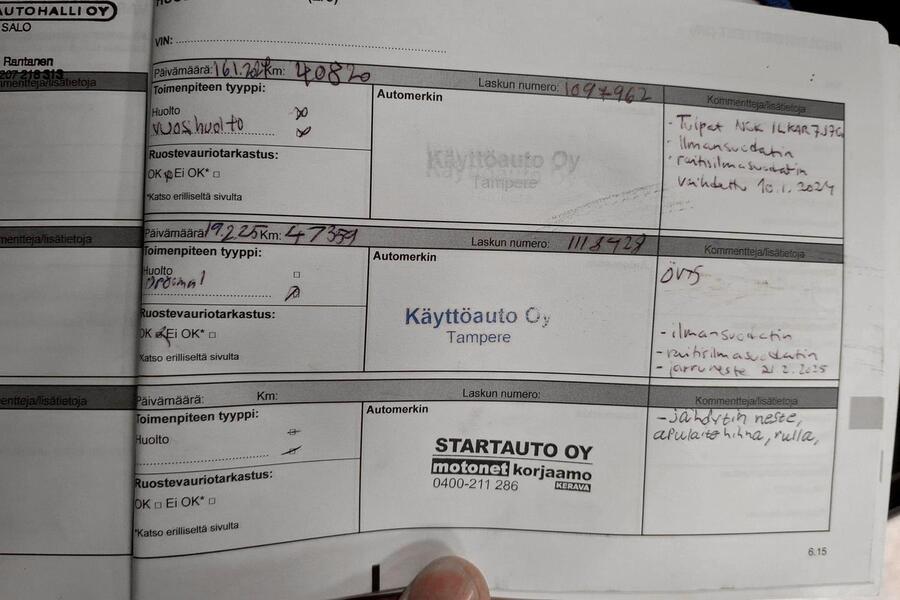 AUTOHALLI OY
SALO
Rantanen
207 218 313
VIN:
Päivämäärä: Km: 40820 Laskun numero: 1097962 Kommentteja/lisätietoja
Toimenpiteen tyyppi:
Automerkin
Huolto
vuosihuolto
Ruostevauriotarkastus:
OK Ei OK* □
*Katso erilliseltä sivulta
Käyttöauto Oy
Tampere
- Tulpat NGK ILKAR7J7G
- Ilmansuodatin
- raitisilmasuodatin
vaihdettu 10.1.2024
Päivämäärä: 19.2.25 Km: 47359 Laskun numero: 1118428 Kommentteja/lisätietoja
Toimenpiteen tyyppi:
Automerkin
Huolto □
Ruostevauriotarkastus:
OK Ei OK* □
*Katso erilliseltä sivulta
Käyttöauto Oy
Tampere
- ilmansuodatin
- raitisilmasuodatin
- jarruneste 21.2.2025
Päivämäärä: Km: Laskun numero: Kommentteja/lisätietoja
Toimenpiteen tyyppi:
Automerkin
Huolto
Ruostevauriotarkastus:
OK □ Ei OK* □
*Katso erilliseltä sivulta
STARTAUTO OY
motonet korjaamo
0400-211 286 KERAVA
- jähdytin neste,
apulaitehihna, rulla,
6.15